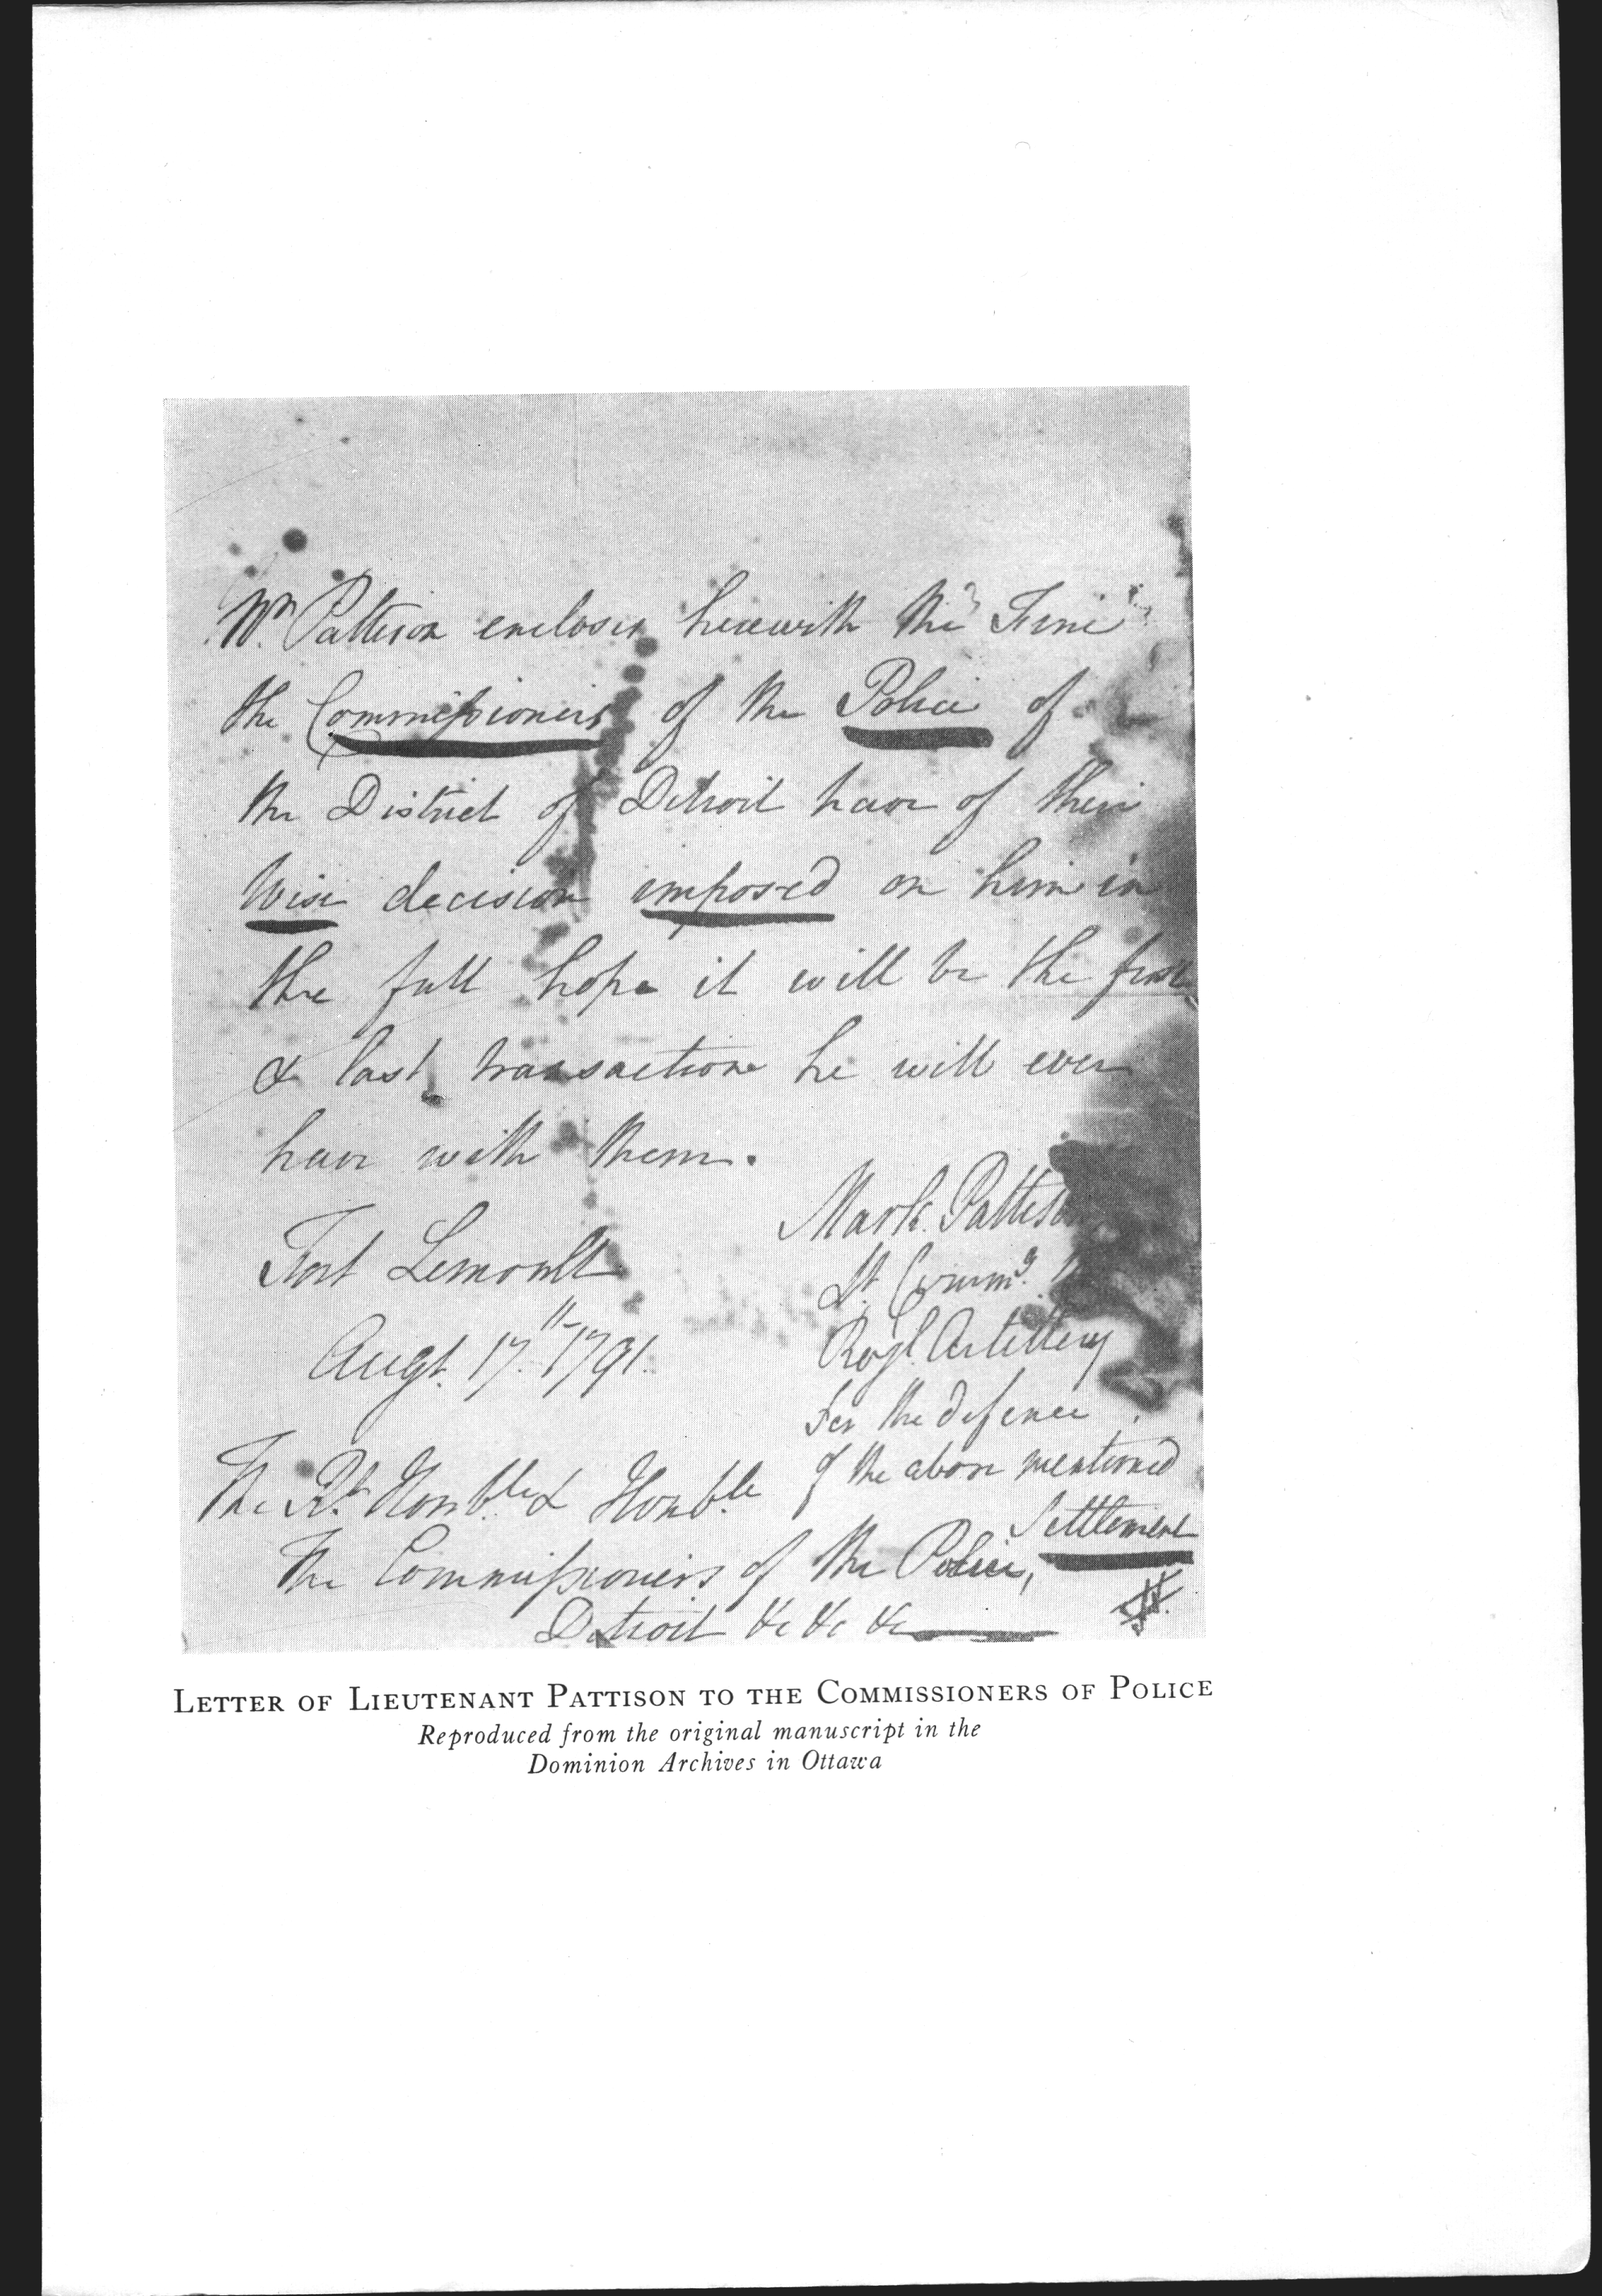 Mr. Pattison encloses herewith the Fine
the Commissioners of the Police of
the District of Detroit have of their
Wise decision imposed on him in
the full hope it will be the first
& last transaction he will ever
have with them.
Mark Pattison
Fort Lernoult
Lt. Commd.
Augt. 17th 1791.
Royl. Artillery
For the defence
of the above mentioned
Settlement
The Rt. Honble & Honble
The Commissioners of the Police,
Detroit &c &c &c
LETTER OF LIEUTENANT PATTISON TO THE COMMISSIONERS OF POLICE
Reproduced from the original manuscript in the
Dominion Archives in Ottawa